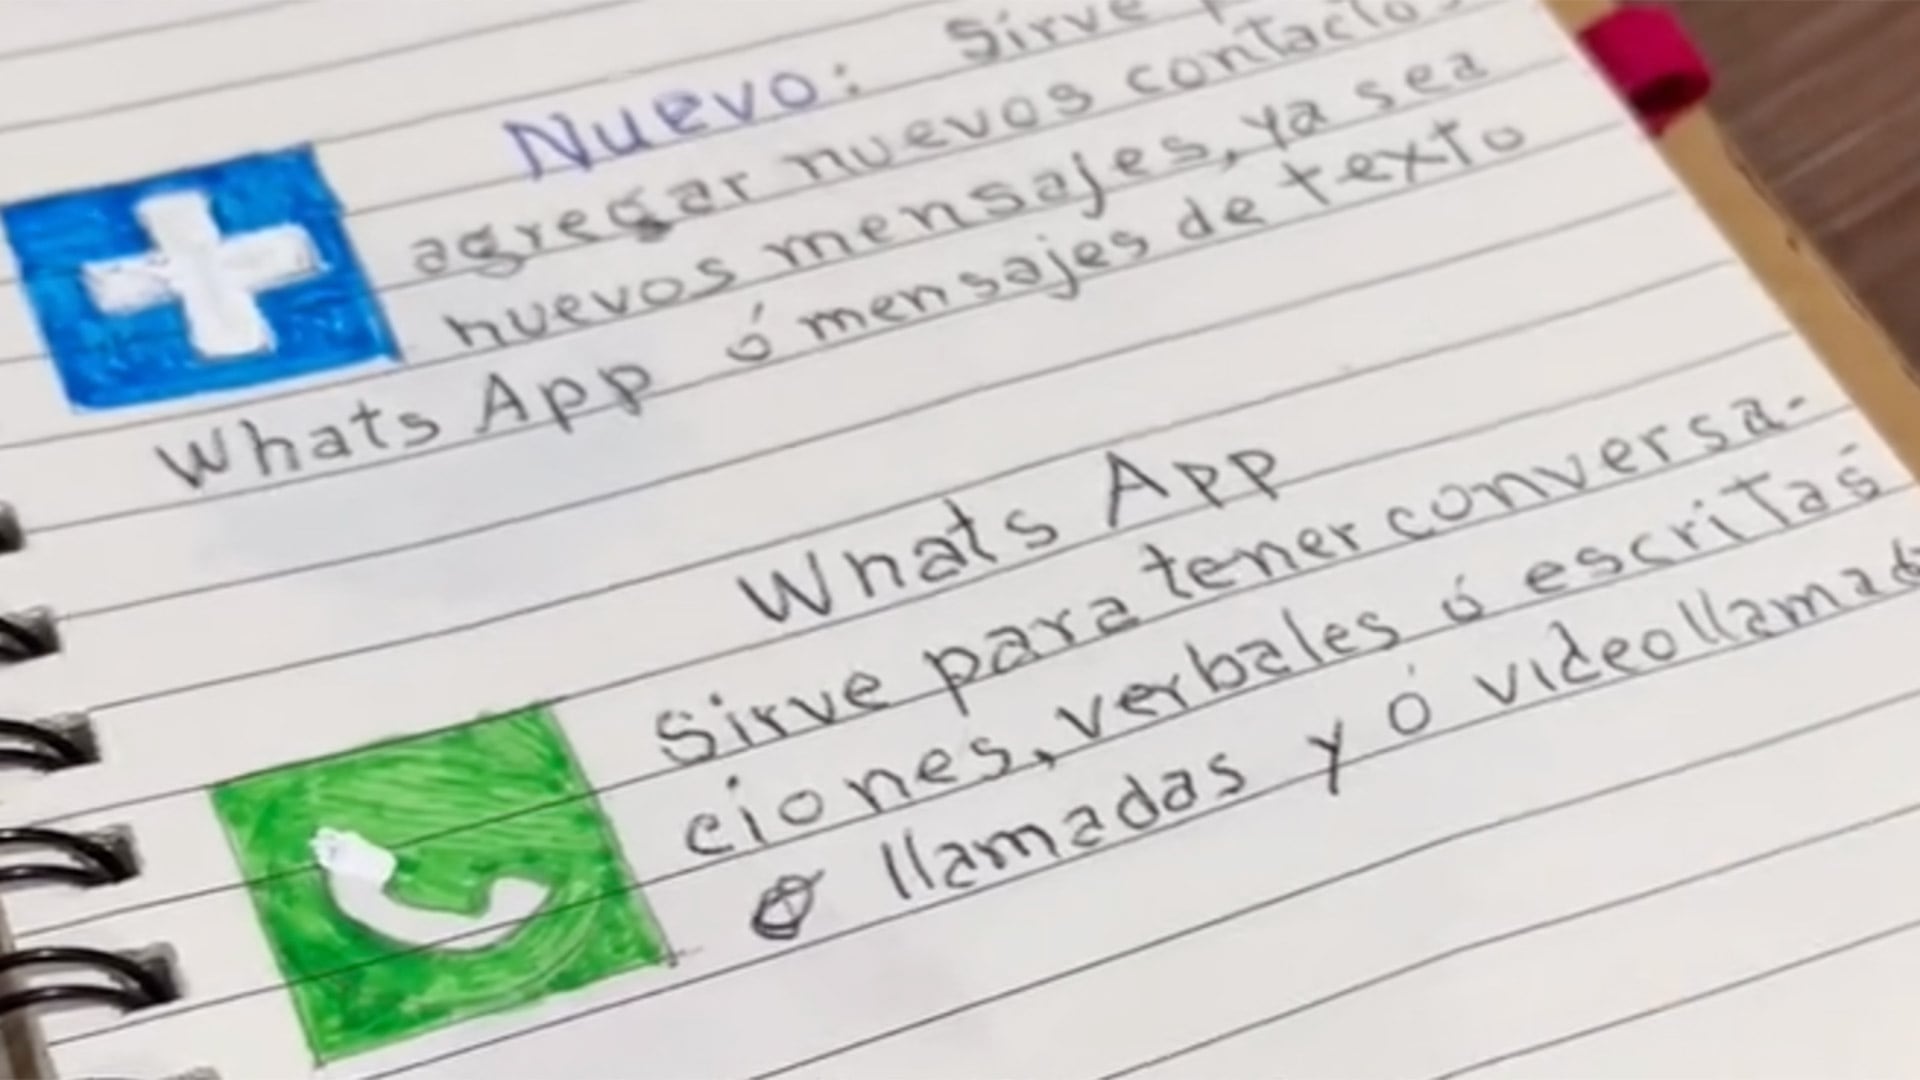 Nuevo: Sirve
agregar nuevos contactos
nuevos mensajes, ya sea
Whats App ó mensajes de texto
Whats App
Sirve para tener conversa-
ciones, verbales ó escritas
llamadas y ó videollamad